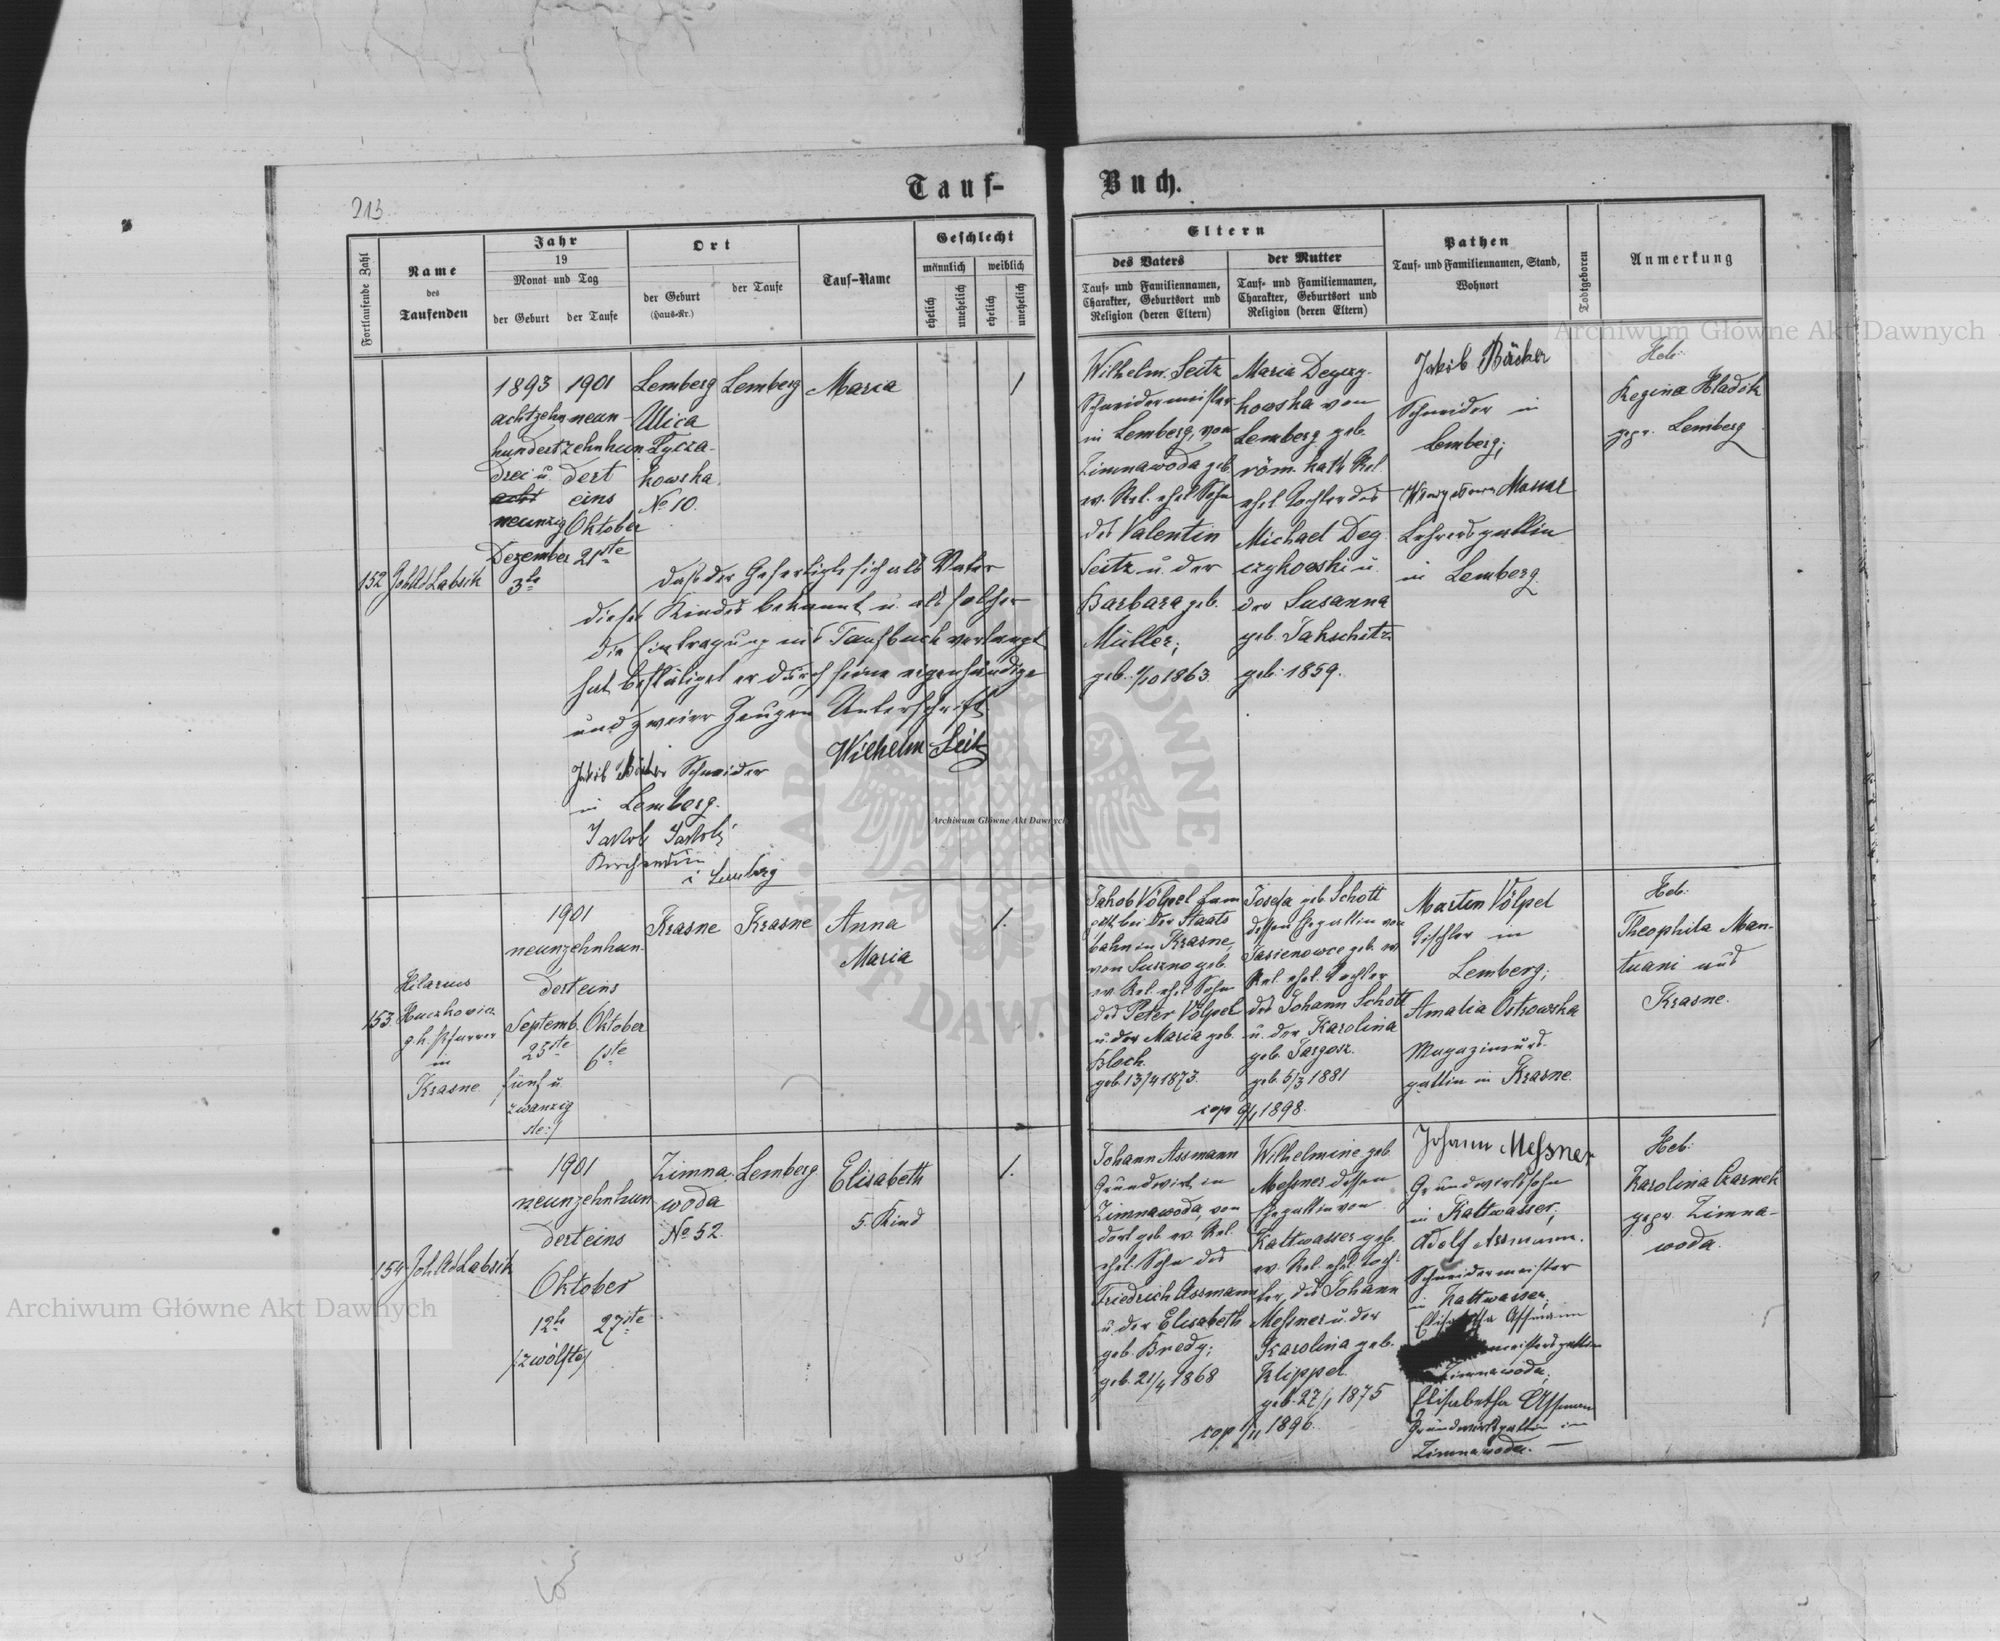 213.
Tauf-
Buch.
Fortlaufende Zahl
Name
des
Taufenden
Jahr
19
Monat und Tag
der Geburt
der Taufe
Ort
der Geburt
(Haus-Nr.)
der Taufe
Tauf-Name
Geschlecht
männlich
weiblich
ehelich
unehelich
ehelich
unehelich
Eltern
des Vaters
Tauf- und Familiennamen,
Charakter, Geburtsort und
Religion (deren Eltern)
der Mutter
Tauf- und Familiennamen,
Charakter, Geburtsort und
Religion (deren Eltern)
Pathen
Tauf- und Familiennamen, Stand,
Wohnort
Todtgeboren
Anmerkung
152
Joh Ad Labsik
1893
achtzehn
hundert
drei u.
neunzig
Dezember
3te
1901
neun-
zehnhun
dert
eins
Oktober
21ste
Lemberg
Ulica
Lycza-
kowska
No 10.
Lemberg
Maria
1
Daß der Gefertigte sich als Vater
dieses Kindes bekannt u. als solcher
die Eintragung ins Taufbuch verlangt
hat bestätiget er durch seine eigenhändige
und zweier Zeugen Unterschrift
Wilhelm Seitz
Jakob Bäcker Schneider
in Lemberg.
Jakob
i Lemberg
Wilhelm Seitz
Schneidermeister
in Lemberg, von
Zimnawoda geb.
ev. Rel. ehel Sohn
des Valentin
Seitz u. der
Barbara geb.
Müller;
geb. 1/10 1863.
Maria Degczy-
kowska von
Lemberg geb.
röm. kath Rel
ehel. Tochter des
Michael Deg
czykowski u.
der Susanna
geb. Jakschitz
geb. 1859.
Jakob Bäcker
Schneider in
Lemberg;
Lehrersgattin
in Lemberg.
Heb:
Regina Hladik
gepr. Lemberg
153.
Hilarius
Huczkowicz
g. k. Pfarrer
in
Krasne
1901
neunzehnhun-
dert eins
Septemb. Oktober
25ste 6ste
fünf u.
zwanzig
ste:/
Krasne
Krasne
Anna
Maria
1.
Jakob Völpel
bei der Staats
bahn in Krasne,
von Suszno geb.
ev. Rel. ehel Sohn
des Peter Völpel
u. der Maria geb.
Bloch.
geb. 13/4 1873.
Josefa geb. Schott
dessen Ehegattin von
Jasienowce geb. ev
Rel. ehel. Tochter
des Johann Schott
u. der Karolina
geb. Targosz.
geb. 5/3 1881
cop 9/1 1898.
Martin Völpel
Tischler in
Lemberg;
Amalia Ostrowska
gattin in Krasne.
Heb:
Theophila Man-
tuani aus
Krasne.
154
Joh Ad Labsik
1901
neunzehnhun
dert eins
Oktober
12te 27ste
/zwölfte/
Zimna
woda
No 52.
Lemberg
Elisabeth
5. Kind
1.
Johann Assmann
Grundwirt in
Zimnawoda, von
dort geb ev. Rel.
ehel. Sohn des
Friedrich Assmann
u. der Elisabeth
geb. Bredy;
geb. 21/4 1868
Wilhelmine geb.
Meßner dessen
Ehegattin von
Kaltwasser geb.
ev. Rel. ehel. Toch-
ter, des Johann
Meßner u. der
Karolina geb.
Klippel.
geb. 27/1 1875
cop 1/11 1896.
Johann Meßner
Grundwirtssohn
in Kaltwasser;
Adolf Assmann.
Schneidermeister
in Kaltwasser;
Assmann
Zimnawoda;
Elisabetha Assmann
Grundwirtsgattin in
Zimnawoda. —
Heb:
Karolina Czarnek
gepr. Zimna-
woda.
Archiwum Główne Akt Dawnych
Archiwum Główne Akt Dawnych
Archiwum Główne Akt Dawnych